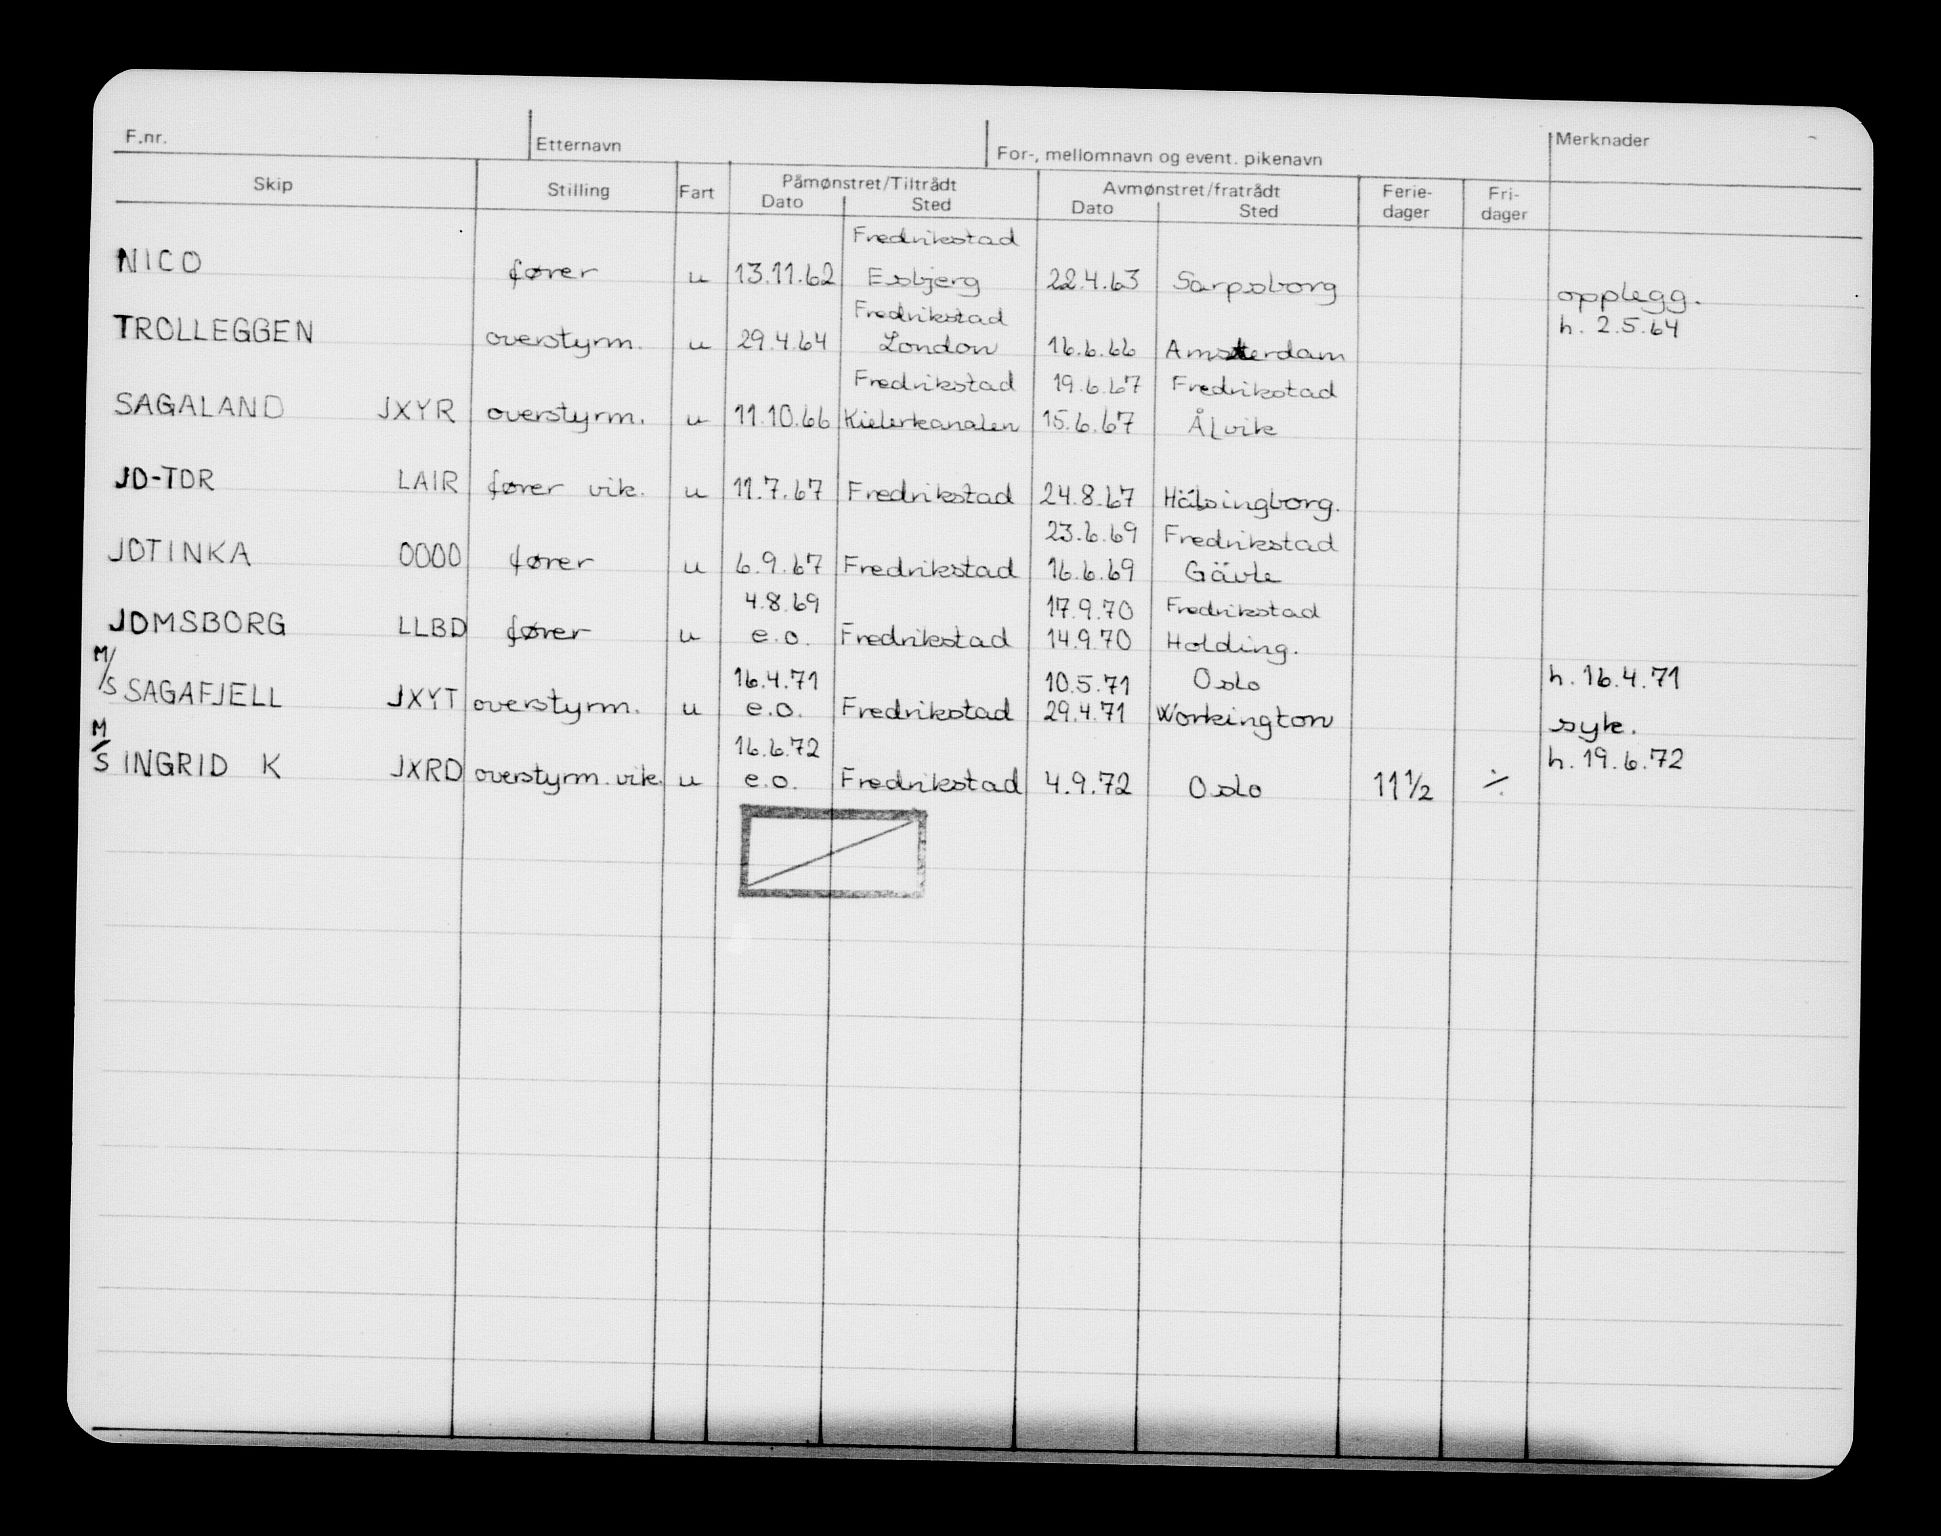 F.nr. Etternavn For-, mellomnavn og event. pikenavn Merknader
Skip Stilling Fart Påmønstret/Tiltrådt Avmønstret/fratrådt Ferie- Fri-
Dato Sted Dato Sted dager dager
Fredrikstad
NICO fører u 13.11.62 Esbjerg 22.4.63 Sarpsborg opplegg.
Fredrikstad h. 2.5.64
TROLLEGGEN overstyrm. u 29.4.64 London 16.6.66 Amsterdam
Fredrikstad 19.6.67 Fredrikstad
SAGALAND JXYR overstyrm. u 11.10.66 Kielerkanalen 15.6.67 Ålvik
JO-TOR LAIR fører vik. u 11.7.67 Fredrikstad 24.8.67 Hälsingborg.
23.6.69 Fredrikstad
JOTINKA OOOO fører u 6.9.67 Fredrikstad 16.6.69 Gävle
4.8.69 17.9.70 Fredrikstad
JOMSBORG LLBD fører u e.o. Fredrikstad 14.9.70 Holding.
16.4.71 10.5.71 Oslo h. 16.4.71
M/S SAGAFJELL JXYT overstyrm. u e.o. Fredrikstad 29.4.71 Workington syk.
16.6.72 h. 19.6.72
M/S INGRID K JXRD overstyrm. vik. u e.o. Fredrikstad 4.9.72 Oslo 11½ ÷